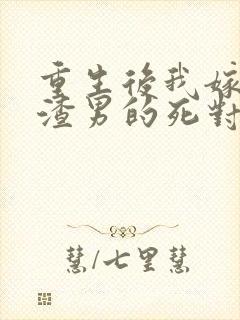 重生後我嫁
渣男的死對
慧/七里慧